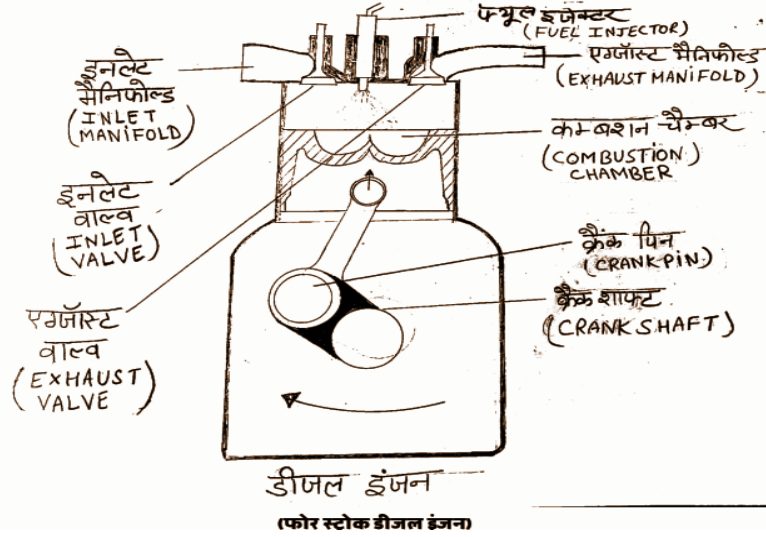 फ्यूल इंजेक्टर
(FUEL INJECTOR)
एग्जॉस्ट मैनिफोल्ड
(EXHAUST MANIFOLD)
इनलेट
मैनिफोल्ड
(INLET
MANIFOLD)
कम्बशन चैम्बर
(COMBUSTION)
CHAMBER
इनलेट
वाल्व
(INLET
VALVE)
क्रैंक पिन
(CRANKPIN)
क्रैंक शाफ्ट
(CRANKSHAFT)
एग्जॉस्ट
वाल्व
(EXHAUST
VALVE)
डीजल इंजन
(फोर स्टोक डीजल इंजन)